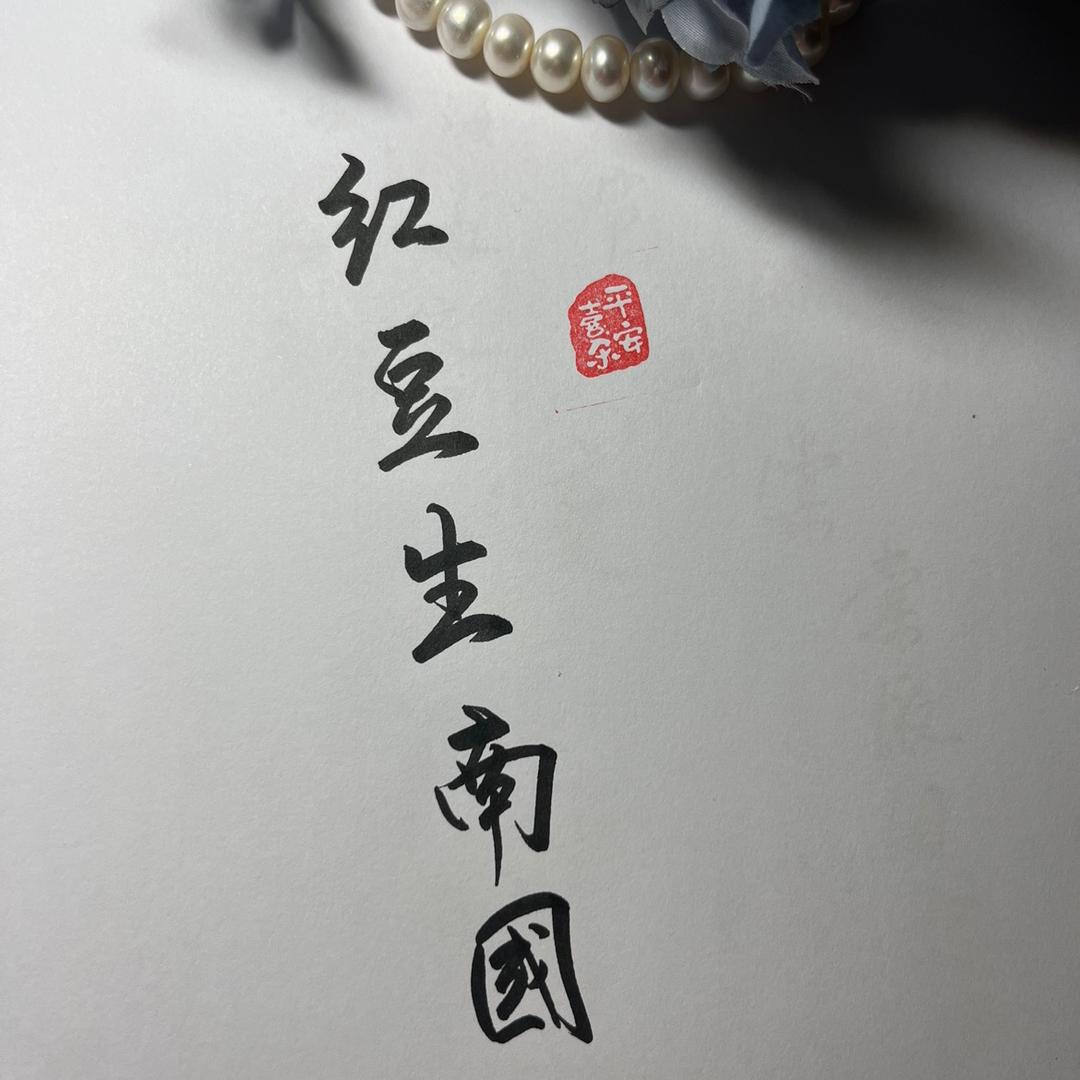 红豆生南國
平安
喜乐